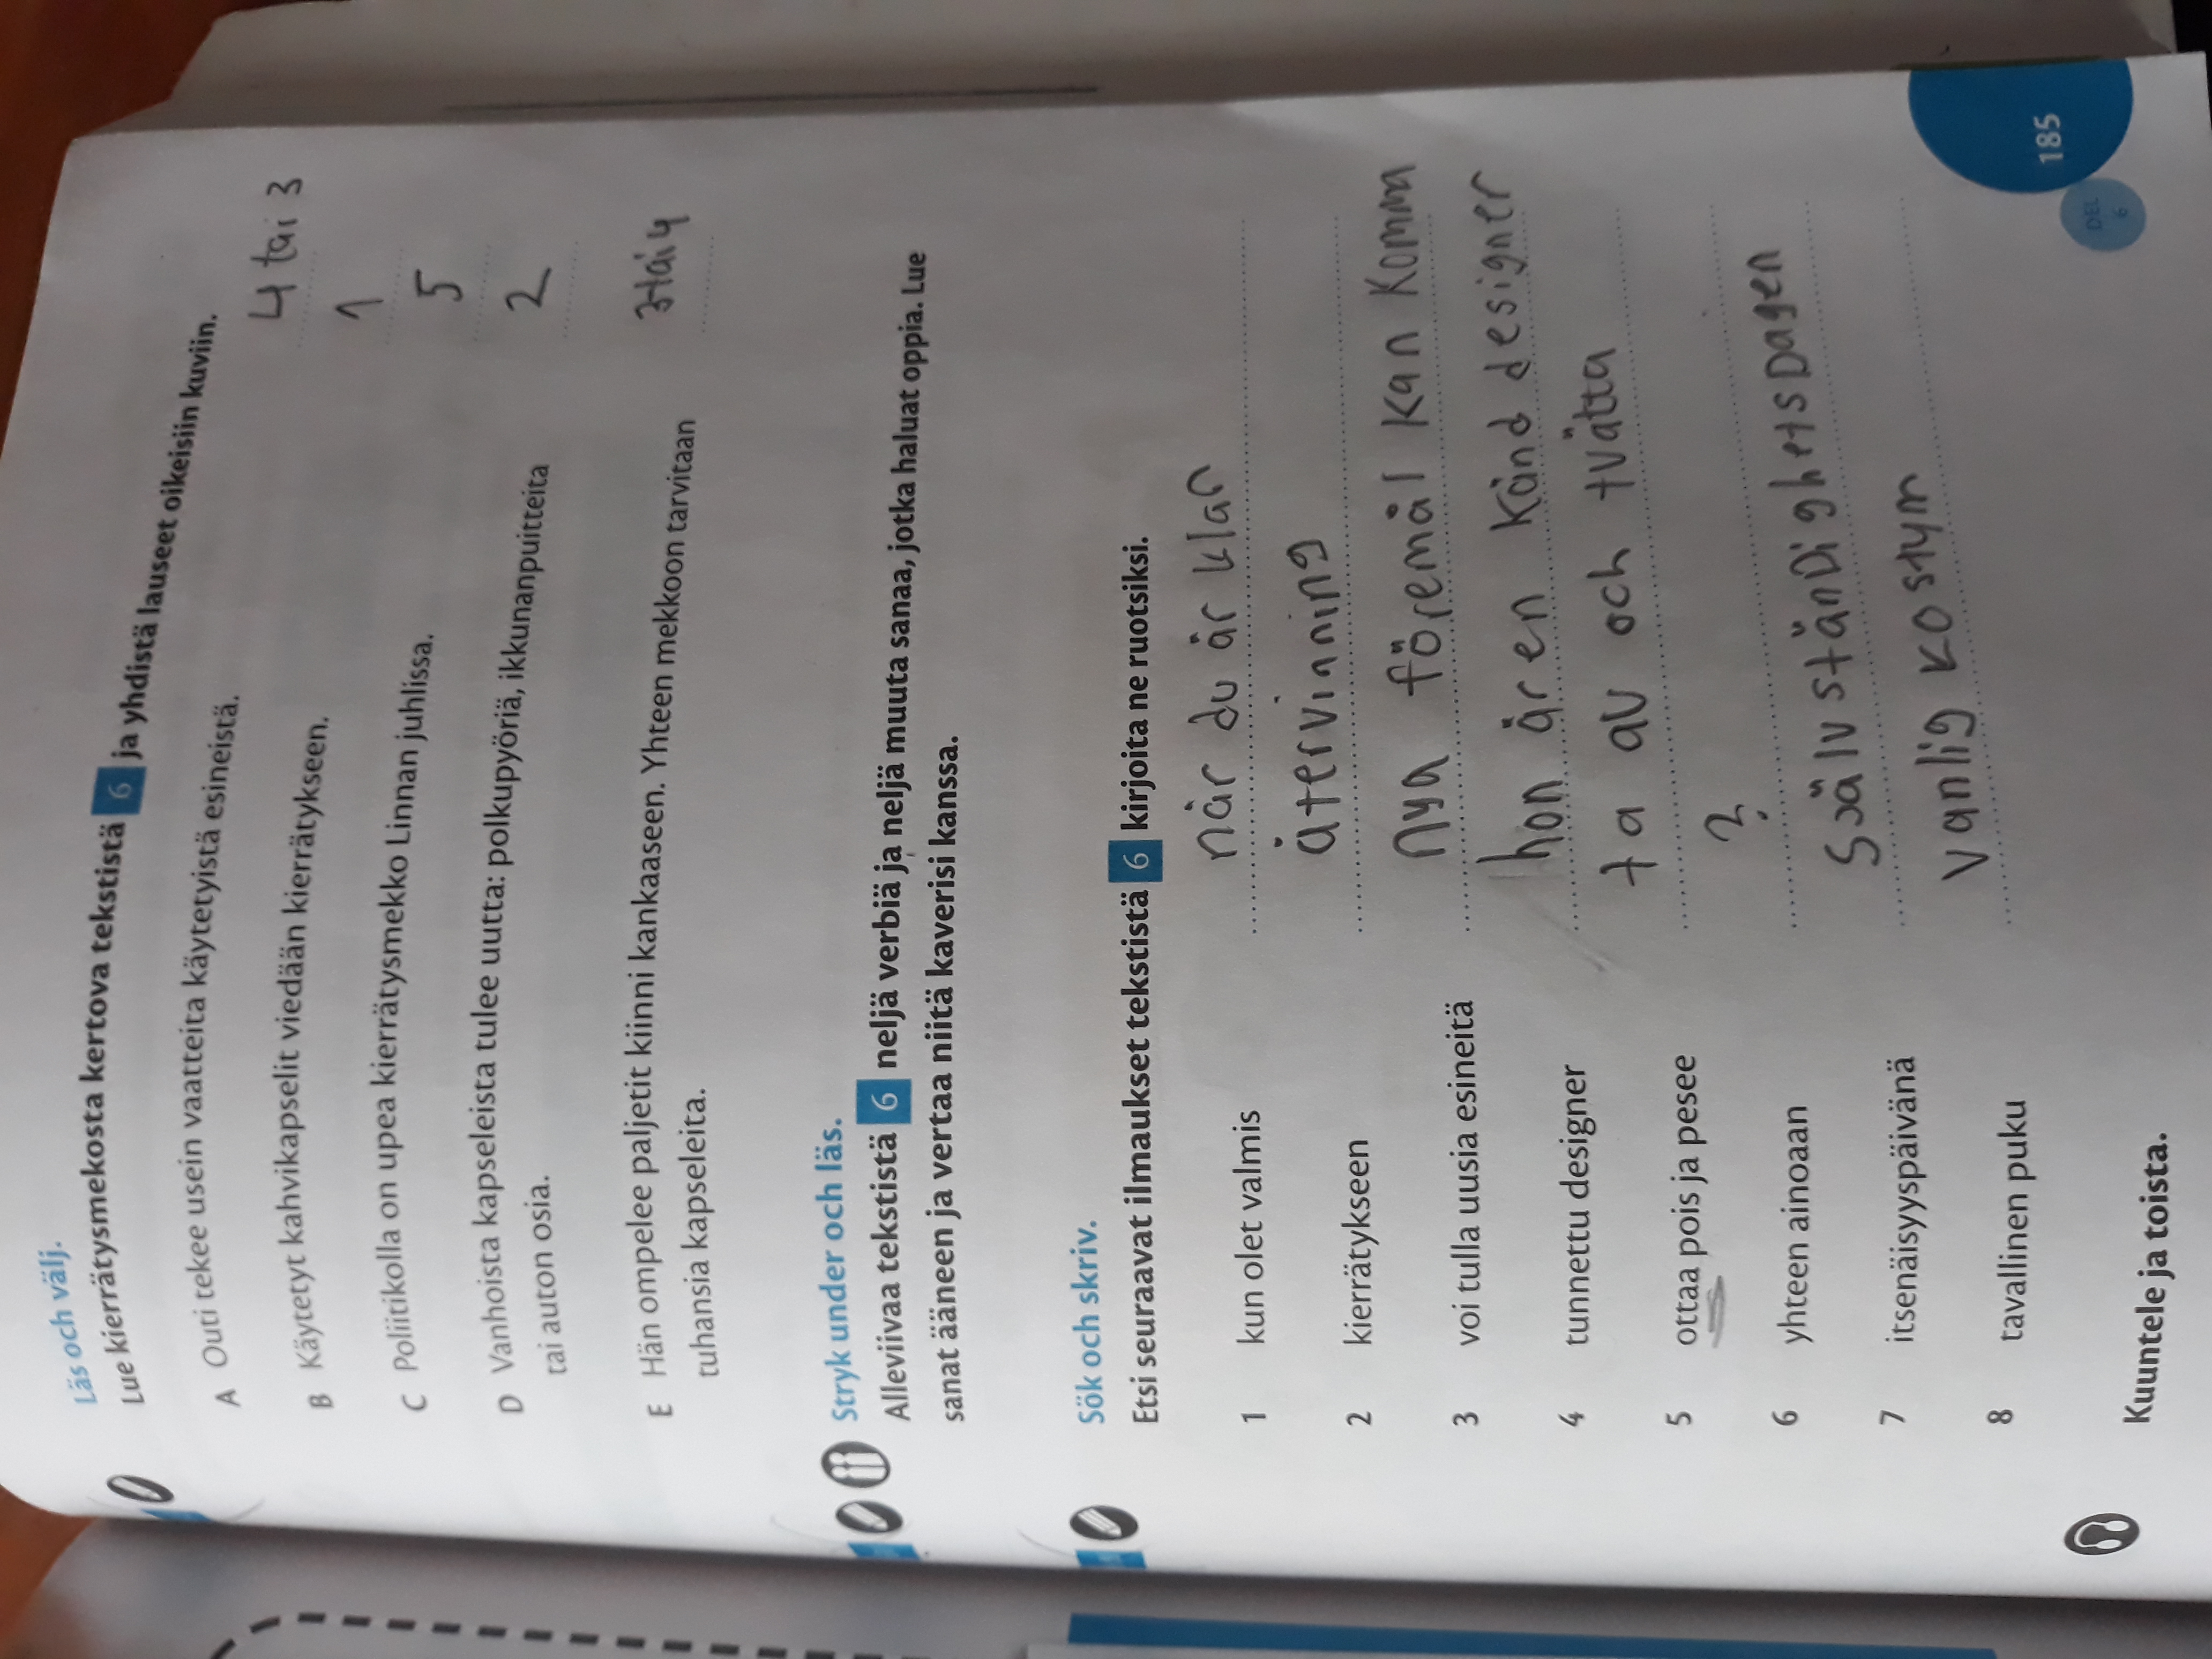 Läs och välj.
Lue kierrätysmekosta kertova tekstistä 6 ja yhdistä lauseet oikeisiin kuviin.
A Outi tekee usein vaatteita käytetyistä esineistä. 4 tai 3
B Käytetyt kahvikapselit viedään kierrätykseen. 1
C Poliitikolla on upea kierrätysmekko Linnan juhlissa. 5
D Vanhoista kapseleista tulee uutta: polkupyöriä, ikkunanpuitteita 2
tai auton osia.
E Hän ompelee paljetit kiinni kankaaseen. Yhteen mekkoon tarvitaan
tuhansia kapseleita.
Stryk under och läs.
Alleviivaa tekstistä 6 neljä verbiä ja neljä muuta sanaa, jotka haluat oppia. Lue
sanat ääneen ja vertaa niitä kaverisi kanssa.
Sök och skriv.
Etsi seuraavat ilmaukset tekstistä 6 kirjoita ne ruotsiksi.
1 kun olet valmis när du är klar
2 kierrätykseen återvinning
3 voi tulla uusia esineitä nya föremål kan komma
4 tunnettu designer hon är en känd designer
5 ottaa pois ja pesee ta av och tvätta
6 yhteen ainoaan ?
7 itsenäisyyspäivänä självständighetsDagen
8 tavallinen puku vanlig kostym
Kuuntele ja toista.
DEL
6
185